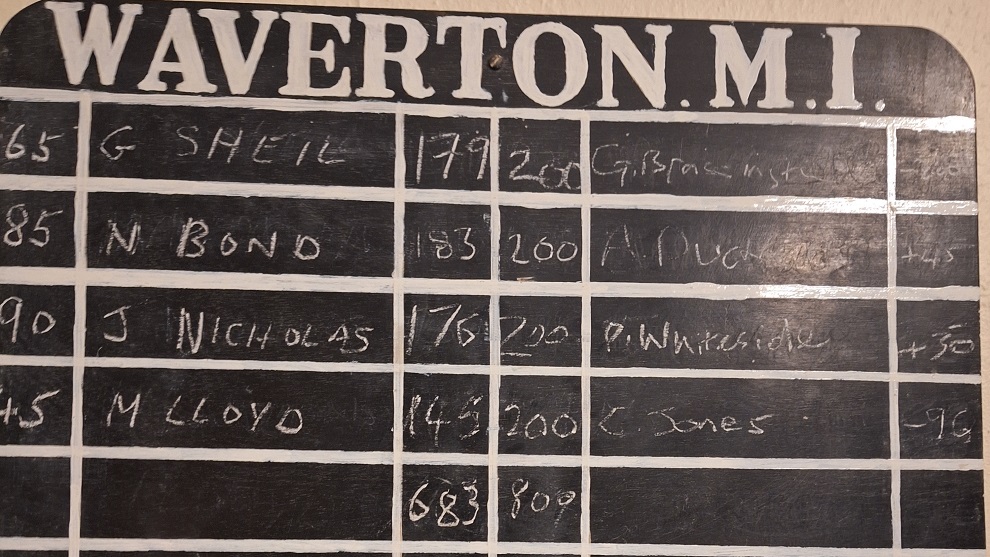 WAVERTON. M. I.
65 G SHEIL 179 200
85 N BOND 183 200
90 J NICHOLAS 176 200 P. Whiteside +50
45 M LLOYD 145 200 C. Jones -96
683 809